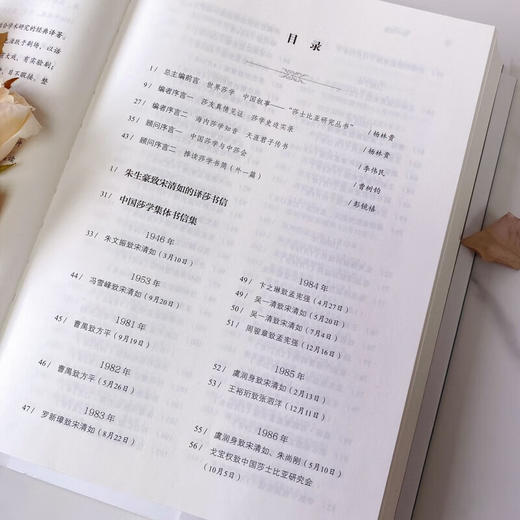 结合学术研究的经典译著。
活跃于剧场，以活
大戏，有实验剧；
目不暇接、整
目 录
1/ 总主编前言 世界莎学 中国叙事——“莎士比亚研究丛书” /杨林贵
9/ 编者序言一 莎戈真情见证 莎学史迹实录 /杨林贵
27/ 编者序言二 海内莎学知音 天涯君子传书 /李伟民
35/ 顾问序言一 中国莎学与中莎会 /曹树钧
43/ 顾问序言二 捧读莎学书简（外一篇） /彭镜禧
1/ 朱生豪致宋清如的译莎书信
31/ 中国莎学集体书信集
1946 年
33/ 朱文振致宋清如（3月10日）
1953 年
44/ 冯雪峰致宋清如（9月20日）
1981 年
45/ 曹禺致方平（9月19日）
1982 年
46/ 曹禺致方平（5月26日）
1983 年
47/ 罗新璋致宋清如（8月22日）
1984 年
49/ 卞之琳致孟宪强（4月27日）
49/ 吴一清致宋清如（5月20日）
50/ 吴一清致宋清如（7月4日）
51/ 周骏章致孟宪强（12月16日）
1985 年
52/ 虞润身致宋清如（2月13日）
53/ 王裕珩致张泗洋（12月11日）
1986 年
55/ 虞润身致宋清如、朱尚刚（5月10日）
56/ 戈宝权致中国莎士比亚研究会
（10月5日）